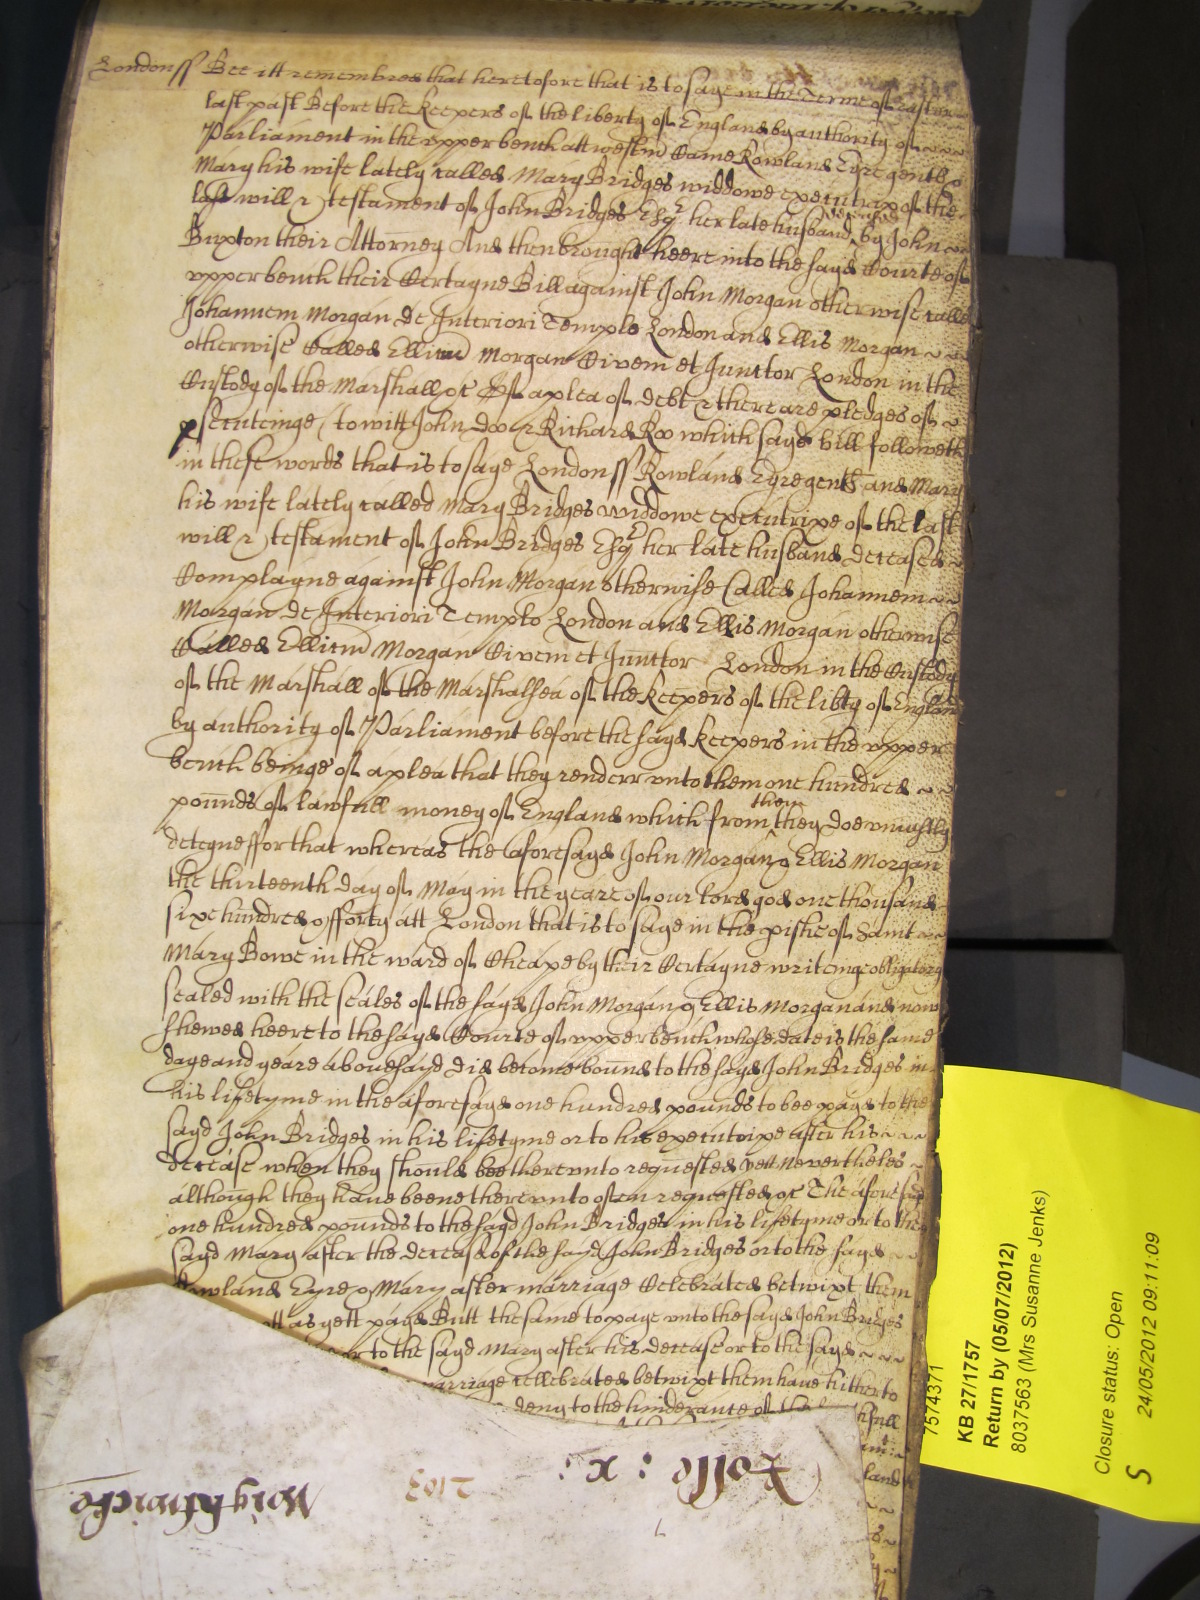 London ss Bee itt remembred that heretofore that is to saye in the Terme of Easter
last past Before the Keepers of the liberty of England by authority of
Parliament in the upper bench att westm̄ Came Rowland Eyre gent &
Mary his wife lately called Mary Bridges widdowe executrix of the
last will & testament of John Bridges Esqr her late husband deceased by John
Buxton their Attorney And then brought heere into the sayd Courte of
upper bench their Certayne Bill against John Morgan otherwise called
Johannem Morgan de Interiori Templo London and Ellis Morgan
otherwise Called Ellium Morgan Civem et Junctor London in the
Custody of the Marshall &c Of a plea of debt & there are pledges of
psecuteinge to witt John Doo & Richard Roo which sayd bill followeth
in these words that is to saye London ss Rowland Eyre gent and Mary
his wife lately called Mary Bridges widdowe executrixe of the last
will & testament of John Bridges Esqr her late husband deceased
Complayne against John Morgan otherwise Called Johannem
Morgan de Interiori Templo London and Ellis Morgan otherwise
Called Ellium Morgan Civem et Junctor London in the Custody
of the Marshall of the Marshalsea of the Keepers of the libty of England
by authority of Parliament before the sayd Keepers in the upper
bench beinge of a plea that they renderr unto them one hundred
pounds of lawfull money of England which from them they doe uniustly
deteyne ffor that whereas the aforesayd John Morgan & Ellis Morgan
the thirteenth day of May in the yeare of our lord god one thousand
sixe hundred & fforty att London that is to saye in the pishe of Saint
Mary Bowe in the ward of Cheape by their Certayne writeinge obligatory
sealed with the seales of the sayd John Morgan & Ellis Morgan and now
shewed heere to the sayd Courte of upper bench whose date is the same
daye and yeare abovesayd did become bound to the sayd John Bridges in
his lifetyme in the aforesayd one hundred pounds to bee payd to the
sayd John Bridges in his lifetyme or to his executrixe after his
decease when they should bee thereunto requested yett neverthelesse
although they have beene thereunto often requested &c The aforesayd
one hundred pounds to the sayd John Bridges in his lifetyme or to the
sayd Mary after the decease of the sayd John Bridges or to the sayd
Rowland Eyre & Mary after marriage Celebrated betwixt them
ott as yett payd Butt the same to paye unto the sayd John Bridges
or to the sayd Mary after his decease or to the sayd
marriage cellebrated betwixt them have hitherto
deny to the hinderance of the
Rollo : x :
2103
Weightwicke
7574371
KB 27/1757
Return by (05/07/2012)
8037563 (Mrs Susanne Jenks)
Closure status: Open
S 24/05/2012 09:11:09